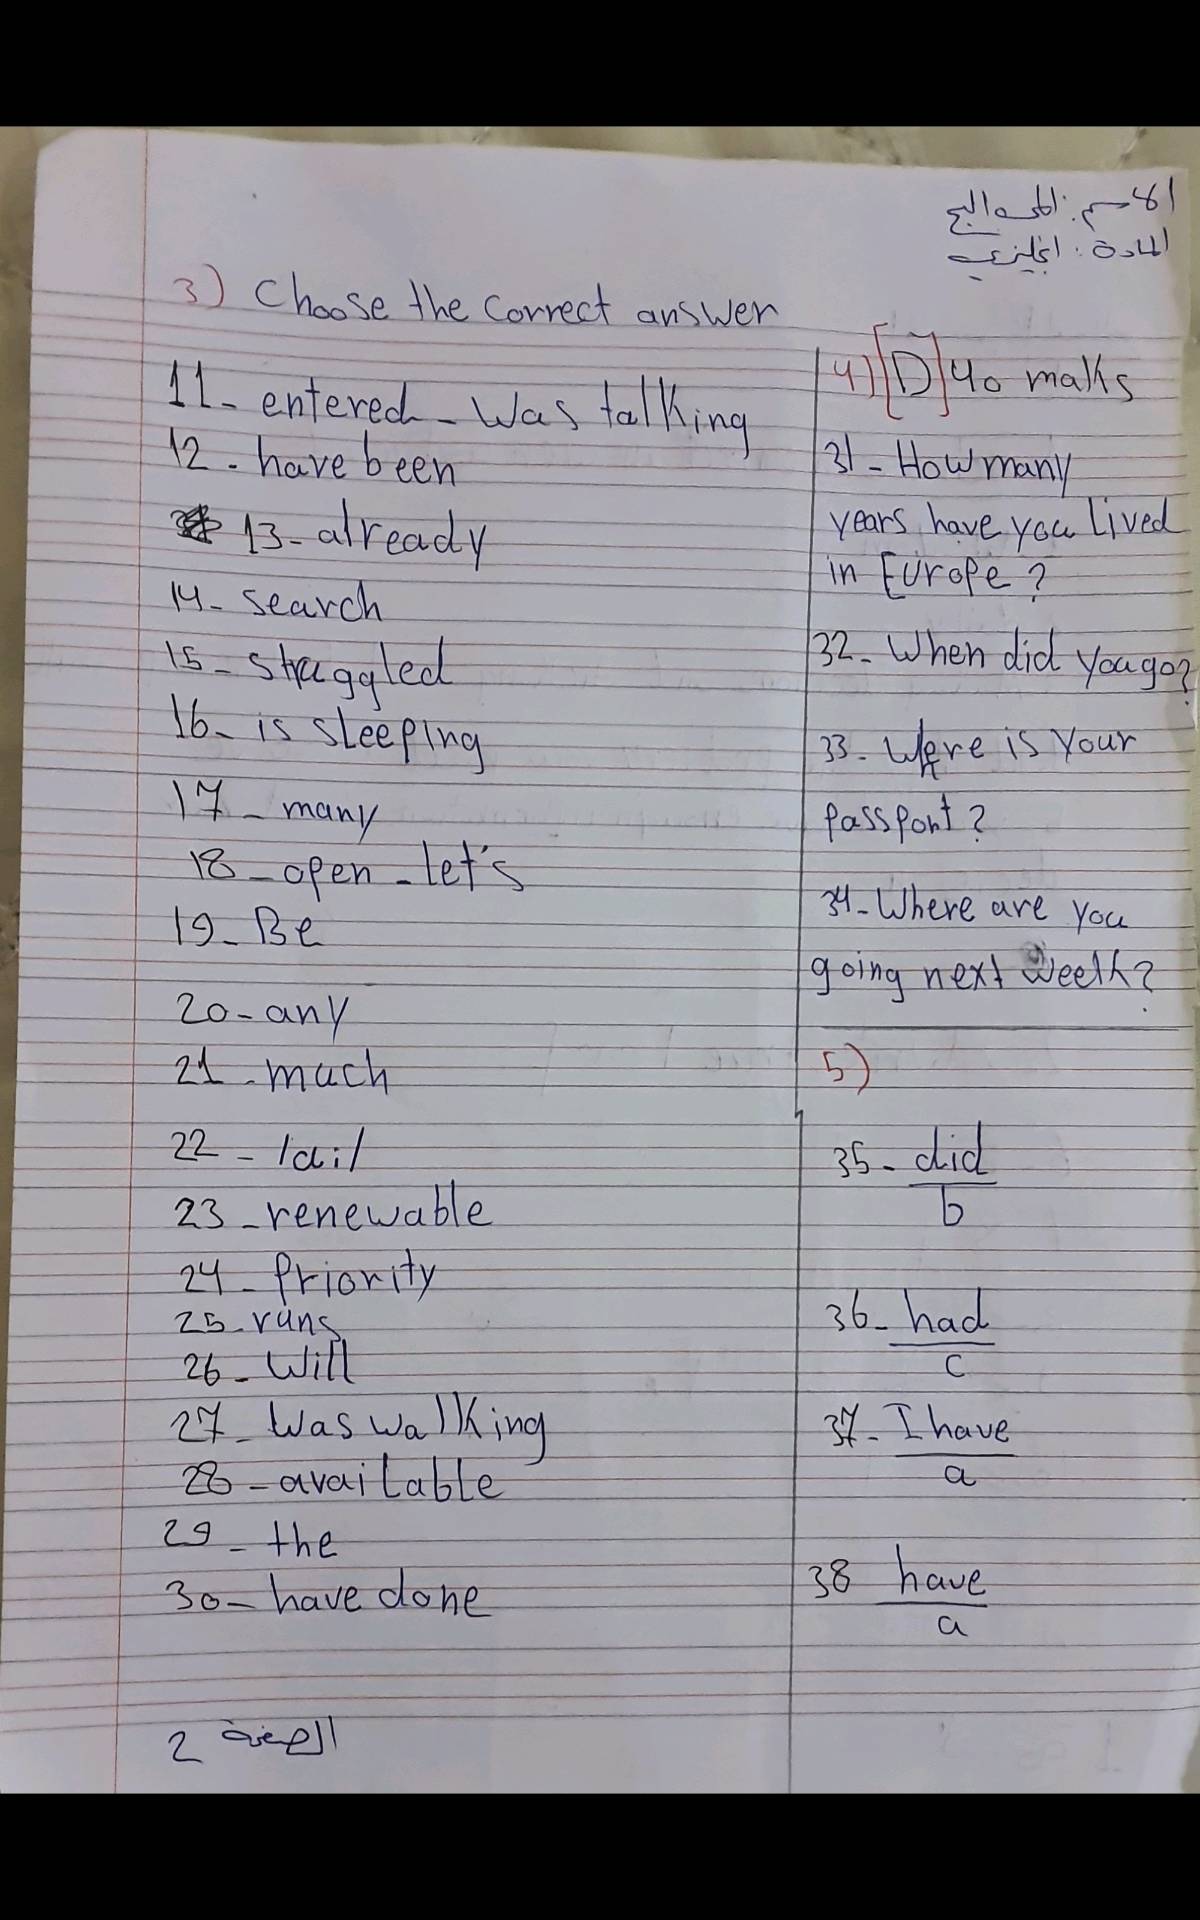 الاسم:
المادة: انجليزي
3) Choose the correct answer
11- entered - was talking
12- have been
13- already
14- search
15- struggled
16- is sleeping
17- many
18- open - let's
19- Be
20- any
21- much
22-
23- renewable
24- Priority
25- runs
26- Will
27- Was walking
28- available
29- the
30- have done
4) [D] 40 malks
31- How many
years have you lived
in Europe?
32- When did you go?
33- Where is your
passport?
34- Where are you
going next week?
5)
35- did
b
36- had
c
37- I have
a
38 have
a
الصفحة 2